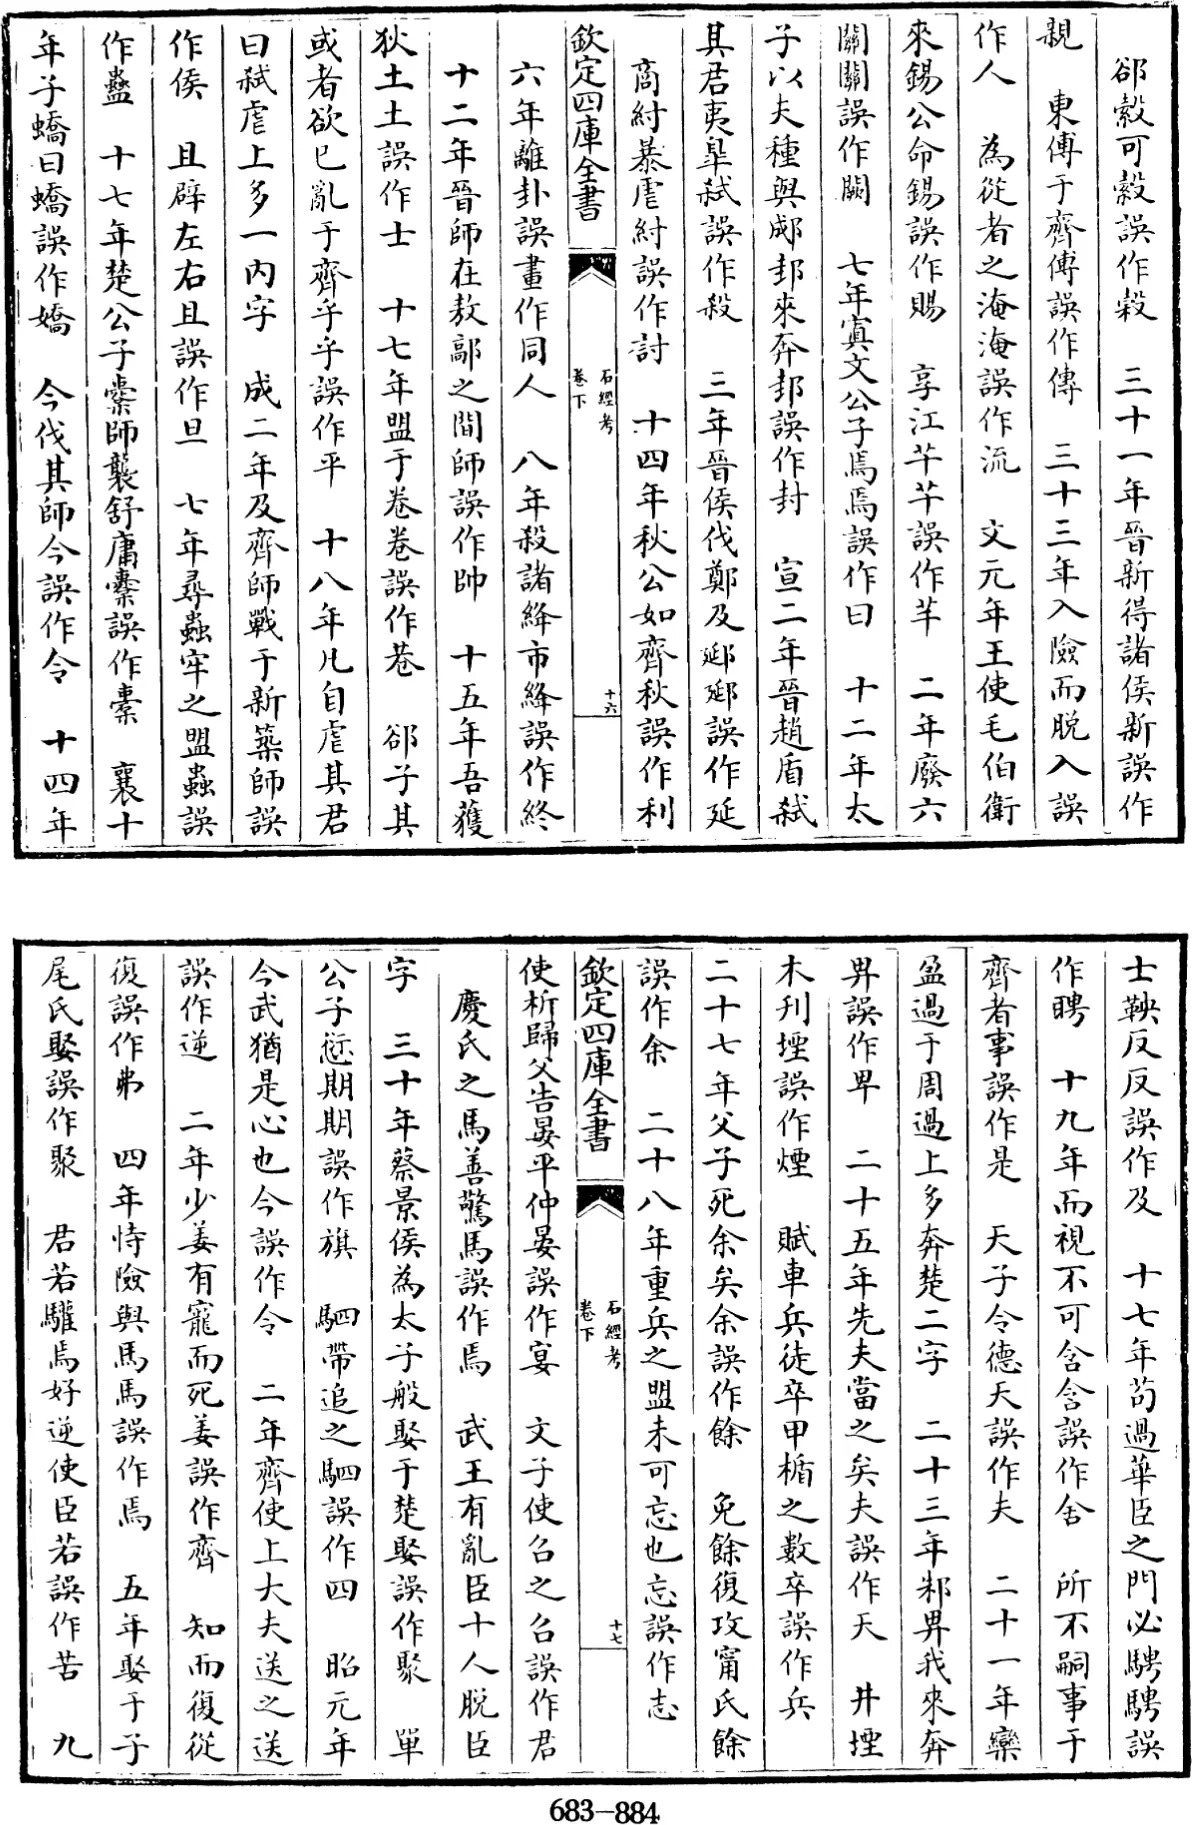 郤縠可縠誤作穀　三十一年晉新得諸侯新誤作
親　東傅于齊傅誤作傳　三十三年入險而脱入誤
作人　為從者之淹淹誤作流　文元年王使毛伯衛
來錫公命錫誤作賜　享江芊芊誤作羊　二年廢六
關關誤作闕　七年寘文公子焉焉誤作曰　十二年太
子以夫種與郕邽來奔邽誤作封　宣二年晉趙盾弑
其君夷臯弑誤作殺　三年晉侯伐鄭及郔郔誤作延
商紂暴虐紂誤作討　十四年秋公如齊秋誤作利
欽定四庫全書
石經考
卷下
十六
六年離卦誤畫作同人　八年殺諸絳市絳誤作終
十二年晉師在敖鄗之間師誤作帥　十五年吾獲
狄土土誤作士　十七年盟于卷卷誤作巷　郤子其
或者欲已亂于齊乎乎誤作平　十八年凡自虐其君
曰弑虐上多一内字　成二年及齊師戰于新築師誤
作侯　且辟左右且誤作旦　七年尋蟲牢之盟蟲誤
作蠱　十七年楚公子櫜師襲舒庸櫜誤作橐　襄十
年子蟜曰蟜誤作嬌　今伐其師今誤作令　十四年
士鞅反反誤作及　十七年茍過華臣之門必騁騁誤
作聘　十九年而視不可含含誤作舍　所不嗣事于
齊者事誤作是　天子令德天誤作夫　二十一年欒
盈過于周過上多奔楚二字　二十三年邾畀我來奔
畀誤作卑　二十五年先夫當之矣夫誤作天　井堙
木刋堙誤作煙　賦車兵徒卒甲楯之數卒誤作兵
二十七年父子死余矣余誤作餘　免餘復攻甯氏餘
誤作余　二十八年重兵之盟未可忘也忘誤作志
欽定四庫全書
石經考
卷下
十七
使析歸父告晏平仲晏誤作宴　文子使召之召誤作君
慶氏之馬善驚馬誤作焉　武王有亂臣十人脱臣
字　三十年蔡景侯為太子般娶于楚娶誤作聚　單
公子愆期期誤作旗　駟帶追之駟誤作四　昭元年
今武猶是心也今誤作令　二年齊使上大夫送之送
誤作逆　二年少姜有寵而死姜誤作齊　知而復從
復誤作弗　四年恃險與馬馬誤作焉　五年娶于子
尾氏娶誤作聚　君若驩焉好逆使臣若誤作苦　九
683-884